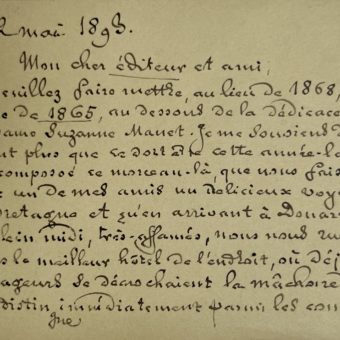 2 mai 1893.
Mon cher éditeur et ami,
euillez faire mettre, au lieu de 1868,
e de 1865, au dessous de la dédicace
ame Suzanne Manet. Je me souviens d
nt plus que ce doit être cette année-là
composé ce morceau-là, que nous fais
c un de mes amis un délicieux voya
retagne et qu'en arrivant à Douar
lein midi, très-affamés, nous nous ru
s le meilleur hôtel de l'endroit, où déj
ageurs se décrochaient la mâchoire
distin immédiatement parmi les con
gue